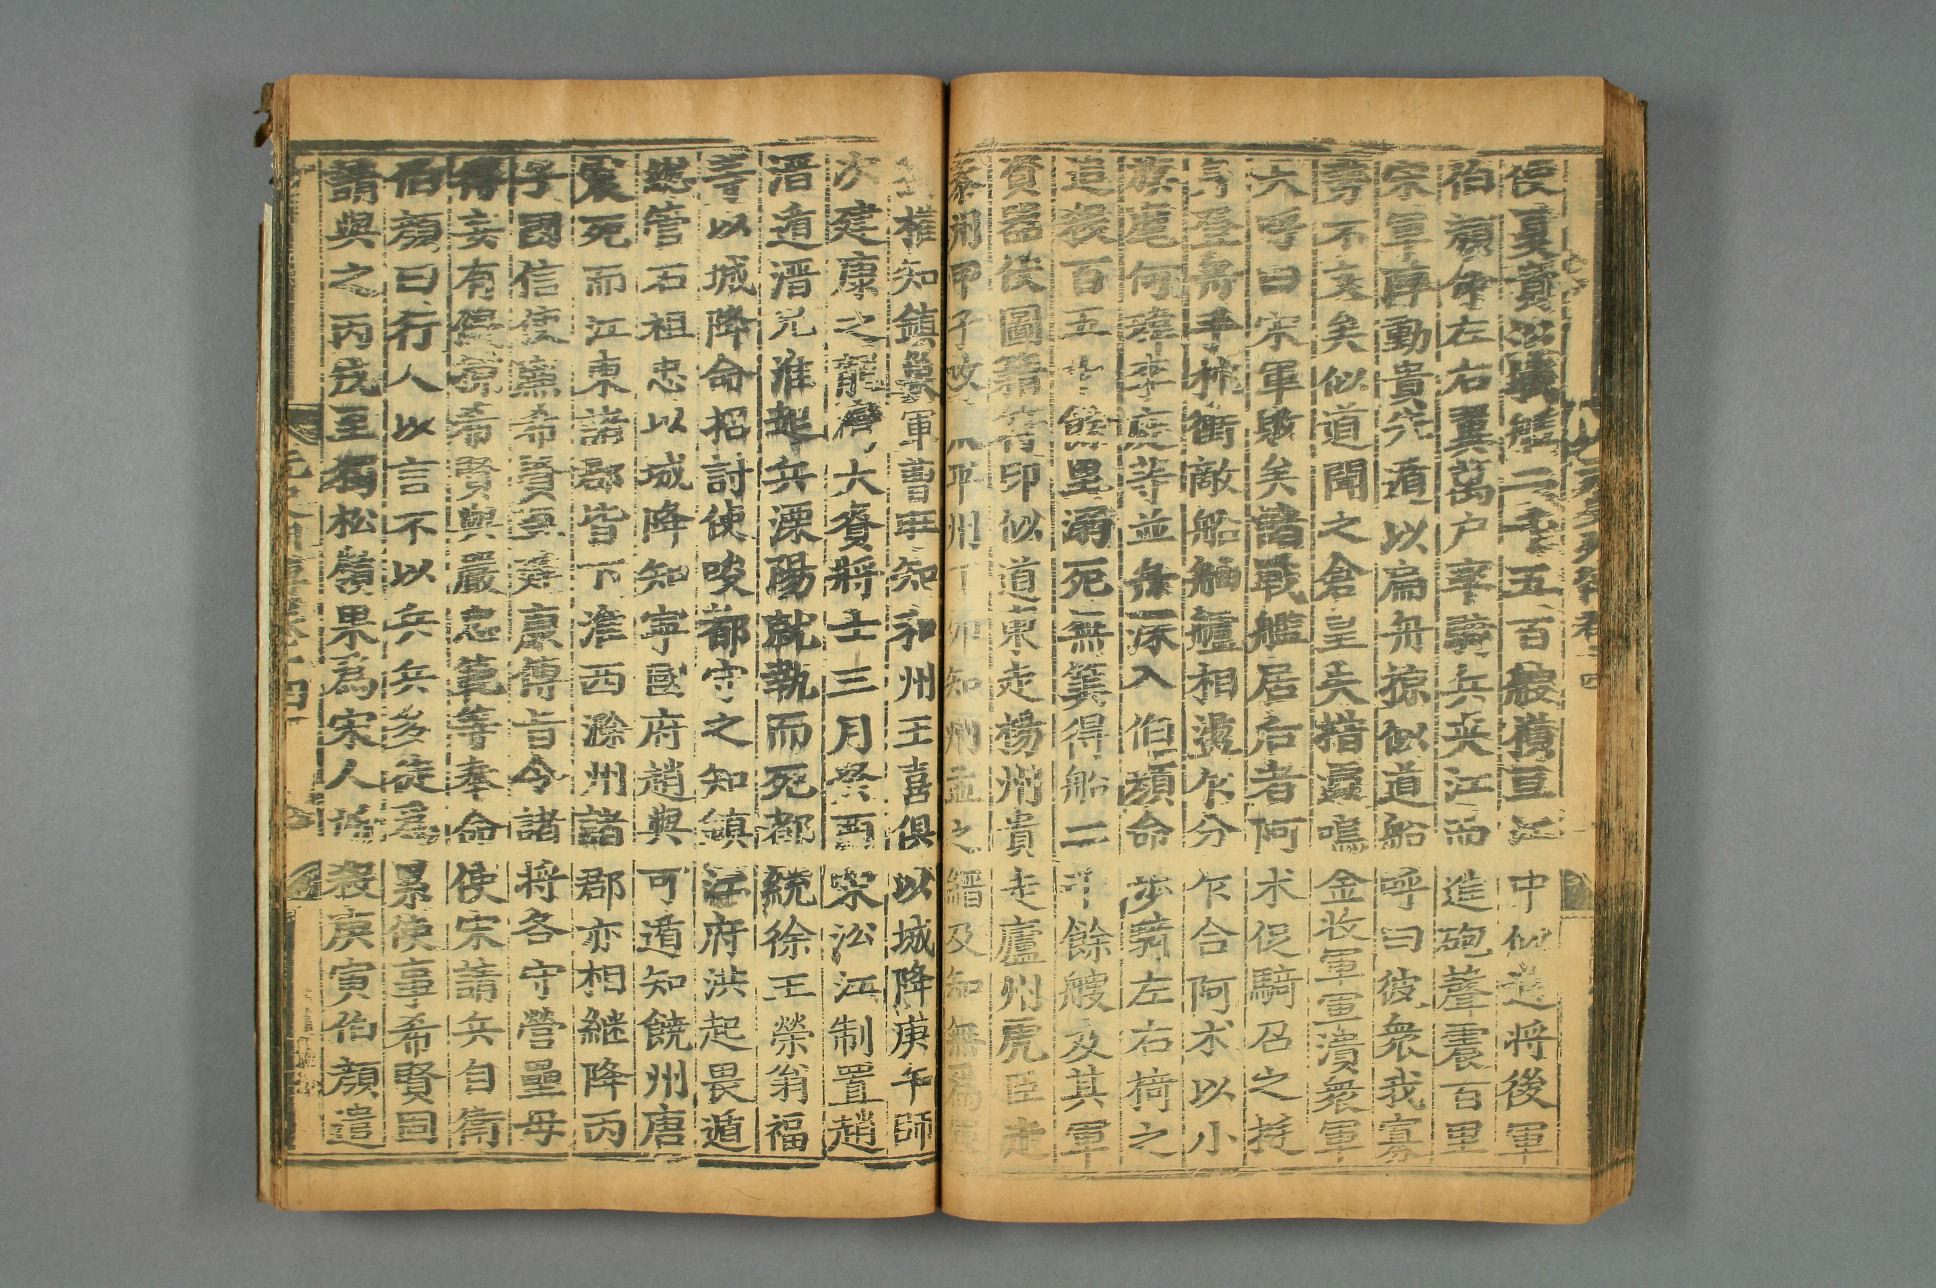 使夏貴以戰艦二千五百艘橫亘江中似道將後軍
伯顏命左右翼萬户率騎兵夾江而進砲聲震百里
宋軍陣動貴先遁以扁舟掠似道船呼曰彼衆我寡
勢不支矣似道聞之倉皇失措遽鳴金收軍軍潰衆軍
大呼曰宋軍敗矣諸戰艦居後者阿术促騎召之挺
身登舟手柁衝敵船舳艫相盪乍分乍合阿术以小
旗麾何瑋李庭等並舟深入伯顏命步騎左右掎之
追殺百五十餘里溺死無筭得船二千餘艘及其軍
資器仗圖籍符印似道東走楊州貴走廬州虎臣走
泰州甲子攻太平州丁卯知州孟之縉及知無爲軍
劉權知鎮巢軍曹旺知和州王喜俱以城降庚午師
次建康之龍灣大賚將士三月癸酉宋沿江制置趙
溍遁溍兄淮起兵溧陽就執而死都統徐王榮翁福
等以城降命招討使唆都守之知鎮江府洪起畏遁
緫管石祖忠以城降知寧國府趙與可遁知饒州唐
震死而江東諸郡皆下淮西滁州諸郡亦相継降丙
子國信使廉希賢至建康傳旨令諸将各守營壘毋
得妄有侵掠希賢與嚴忠範等奉命使宋請兵自衛
伯顏曰行人以言不以兵兵多徒爲累使事希賢固
請與之丙戌至獨松嶺果爲宋人所殺庚寅伯顏遣
元史列傳卷十四